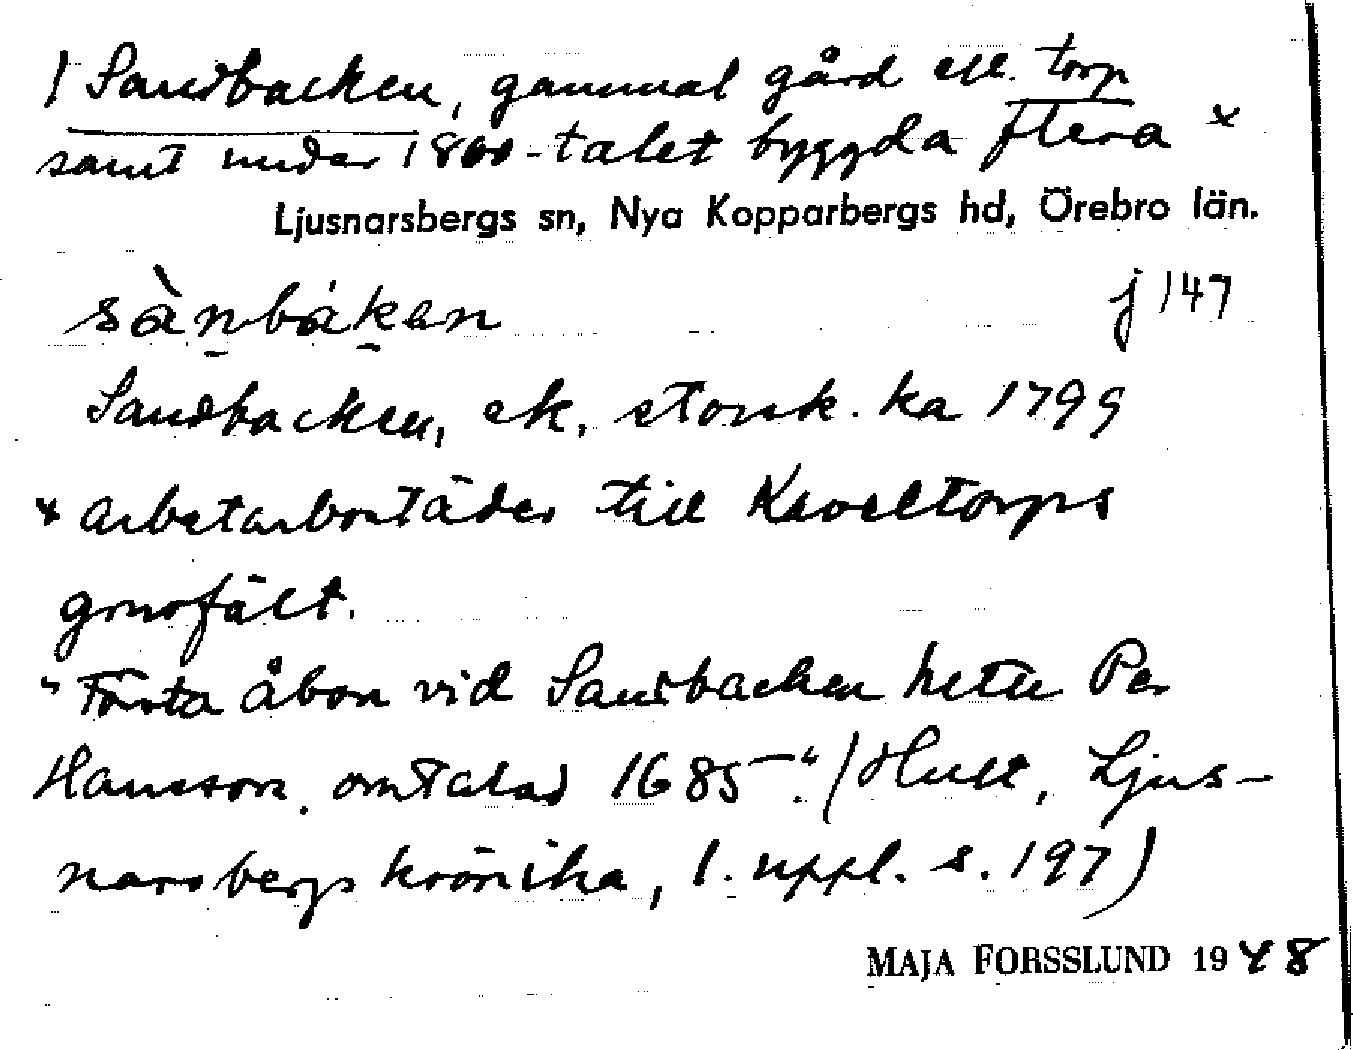 1 Sandbacken, gammal gård ell. torp
samt under 1800-talet byggda flera x
Ljusnarsbergs sn, Nya Kopparbergs hd, Örebro län.
sànbákan j 147
Sandbacken, ek. storsk. ka 1799
x arbetarbostäder till Kaveltorps
gruvfält.
"Första åbon vid Sandbacken hette Per
Hansson, omtalad 1685". (Hult, Ljus-
narsbergs krönika, 1. uppl. s. 197)
MAJA FORSSLUND 1948